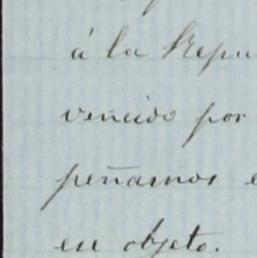 á la Repu
vencido por
peñamos e
ese objeto.